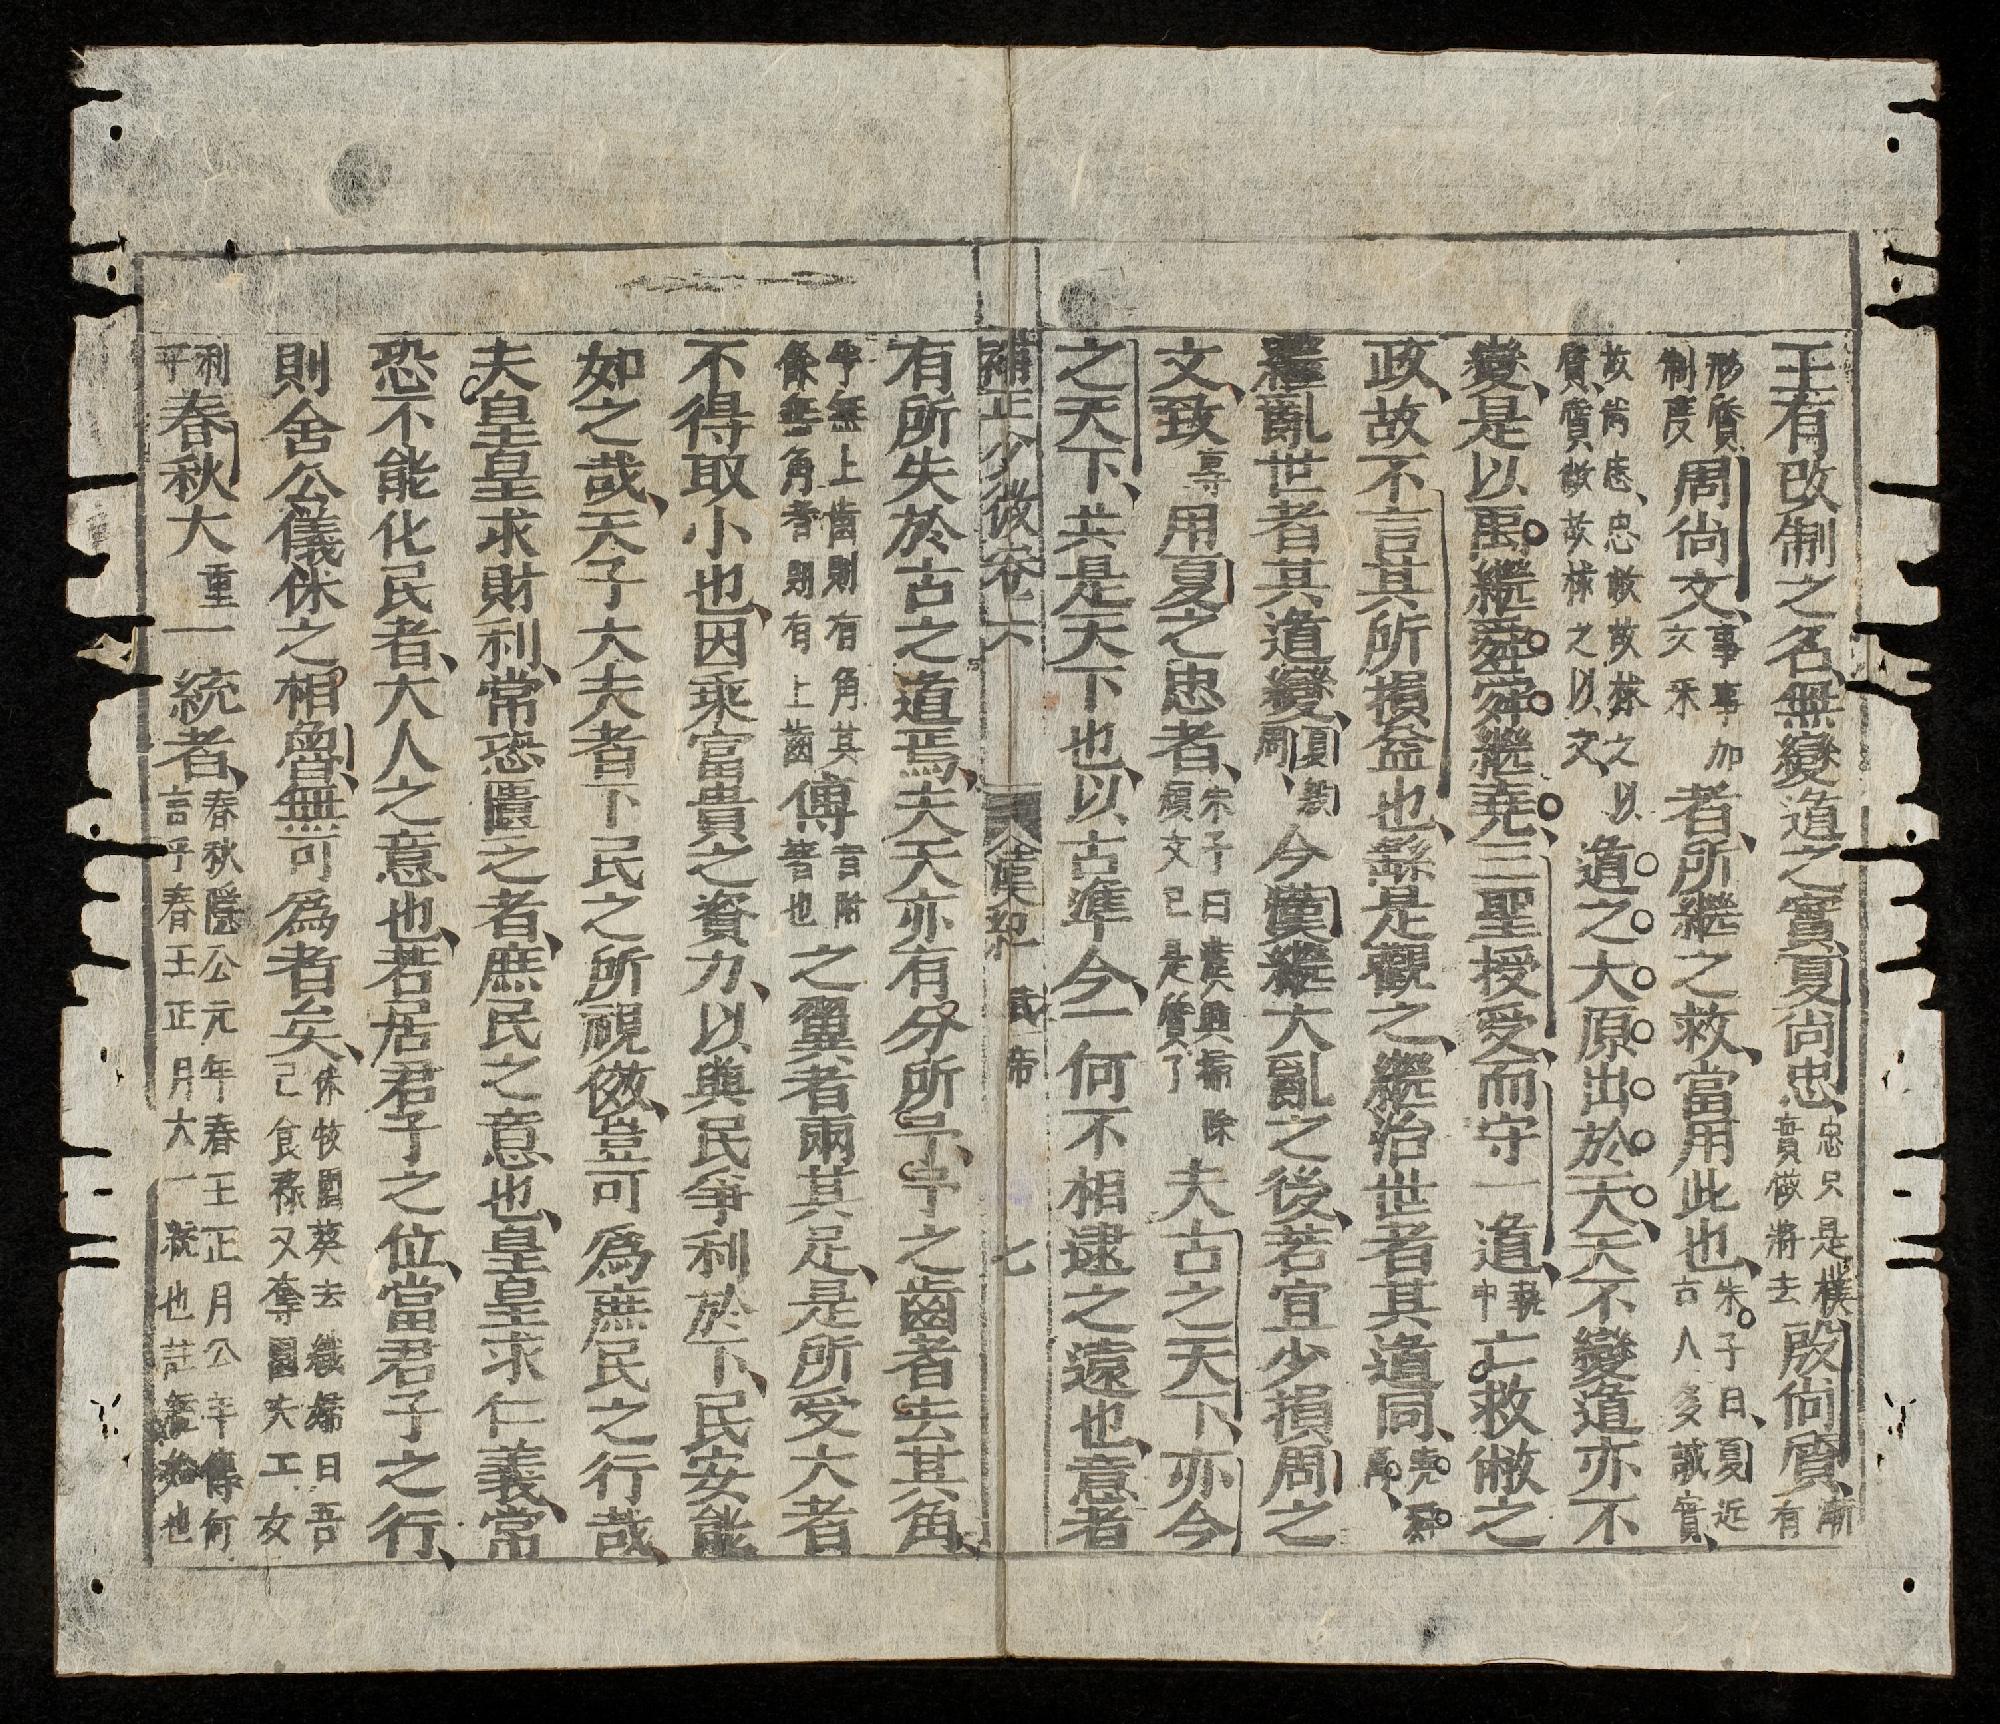 王有改制之名、無變道之實、夏尚忠、忠只是樸實做將去殷尚質、漸有
形質制度周尚文、事事加文采者、所繼之救、當用此也、朱子曰、夏近古人多誠實、
故尚忠、忠敝故捄之以質、質敝故捄之以文、道之大原出於天、天不變道亦不
變、是以禹繼舜舜繼堯、三聖授受、而守一道、執中亡救敝之
政、故不言其所損益也、繇是觀之、繼治世者其道同、堯舜禹、
繼亂世者其道變、夏殷周、今漢繼大亂之後、若宜少損周之
文、致專用夏之忠者、朱子曰漢興掃除煩文已是質了夫古之天下、亦今
之天下、共是天下也、以古準今、一何不相逮之遠也、意者
補正少微卷六 西漢紀 武帝 七
有所失於古之道焉、夫天亦有分所予、予之齒者去其角、
牛無上齒則有角其餘無角者則有上齒傅音附著也之翼者兩其足、是所受大者
不得取小也、因乘富貴之資力、以與民爭利於下、民安能
如之哉、天子大夫者下民之所視傚、豈可爲庶民之行哉、
夫皇皇求財利、常恐匱乏者、庶民之意也、皇皇求仁義、常
恐不能化民者、大人之意也、若居君子之位、當君子之行、
則舍公儀休之相魯、無可爲者矣、休拔園葵去織婦曰吾已食祿又奪園夫工女
利乎春秋大重一統者、春秋隱公元年春王正月公羊傳何言乎春王正月大一統也註統始也